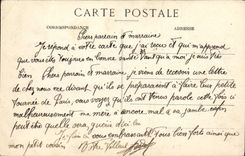 CARTE POSTALE
CORRESPONDANCE ADRESSE
Chers parrain et marraine
Je répond a votre carte que j'ai reçus et qui m'apprend
que vous êtes toujours en bonne santé quant qu'a moi je suis très
bien Chers parrain et marraine je viens de recevoir une lettre
de chez nous me disant qu'ils se préparaient à faire leur petite
tournée de Paris vous voyez qu'ils ont tenus parole cette fois ci
malheureusement ma mère a encore mal a sa jambe enfin
peut être quelle sera guérie d'ici là
Je finis en vous embrassant tous bien forts ainsi que
mon petit cousin Votre filleul